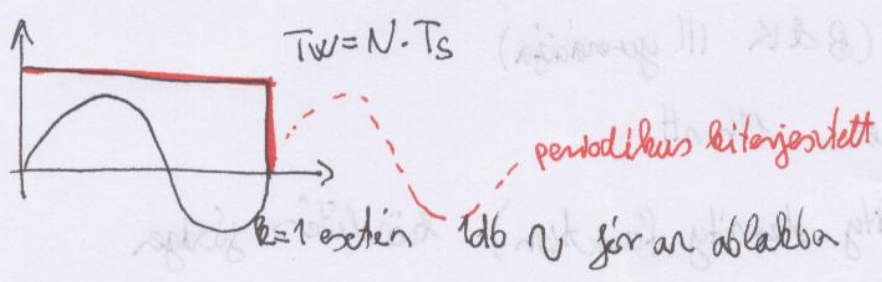 Tw = N · Ts
periodikus kiterjesztett
k=1 esetén 1db ∿ fér az ablakba